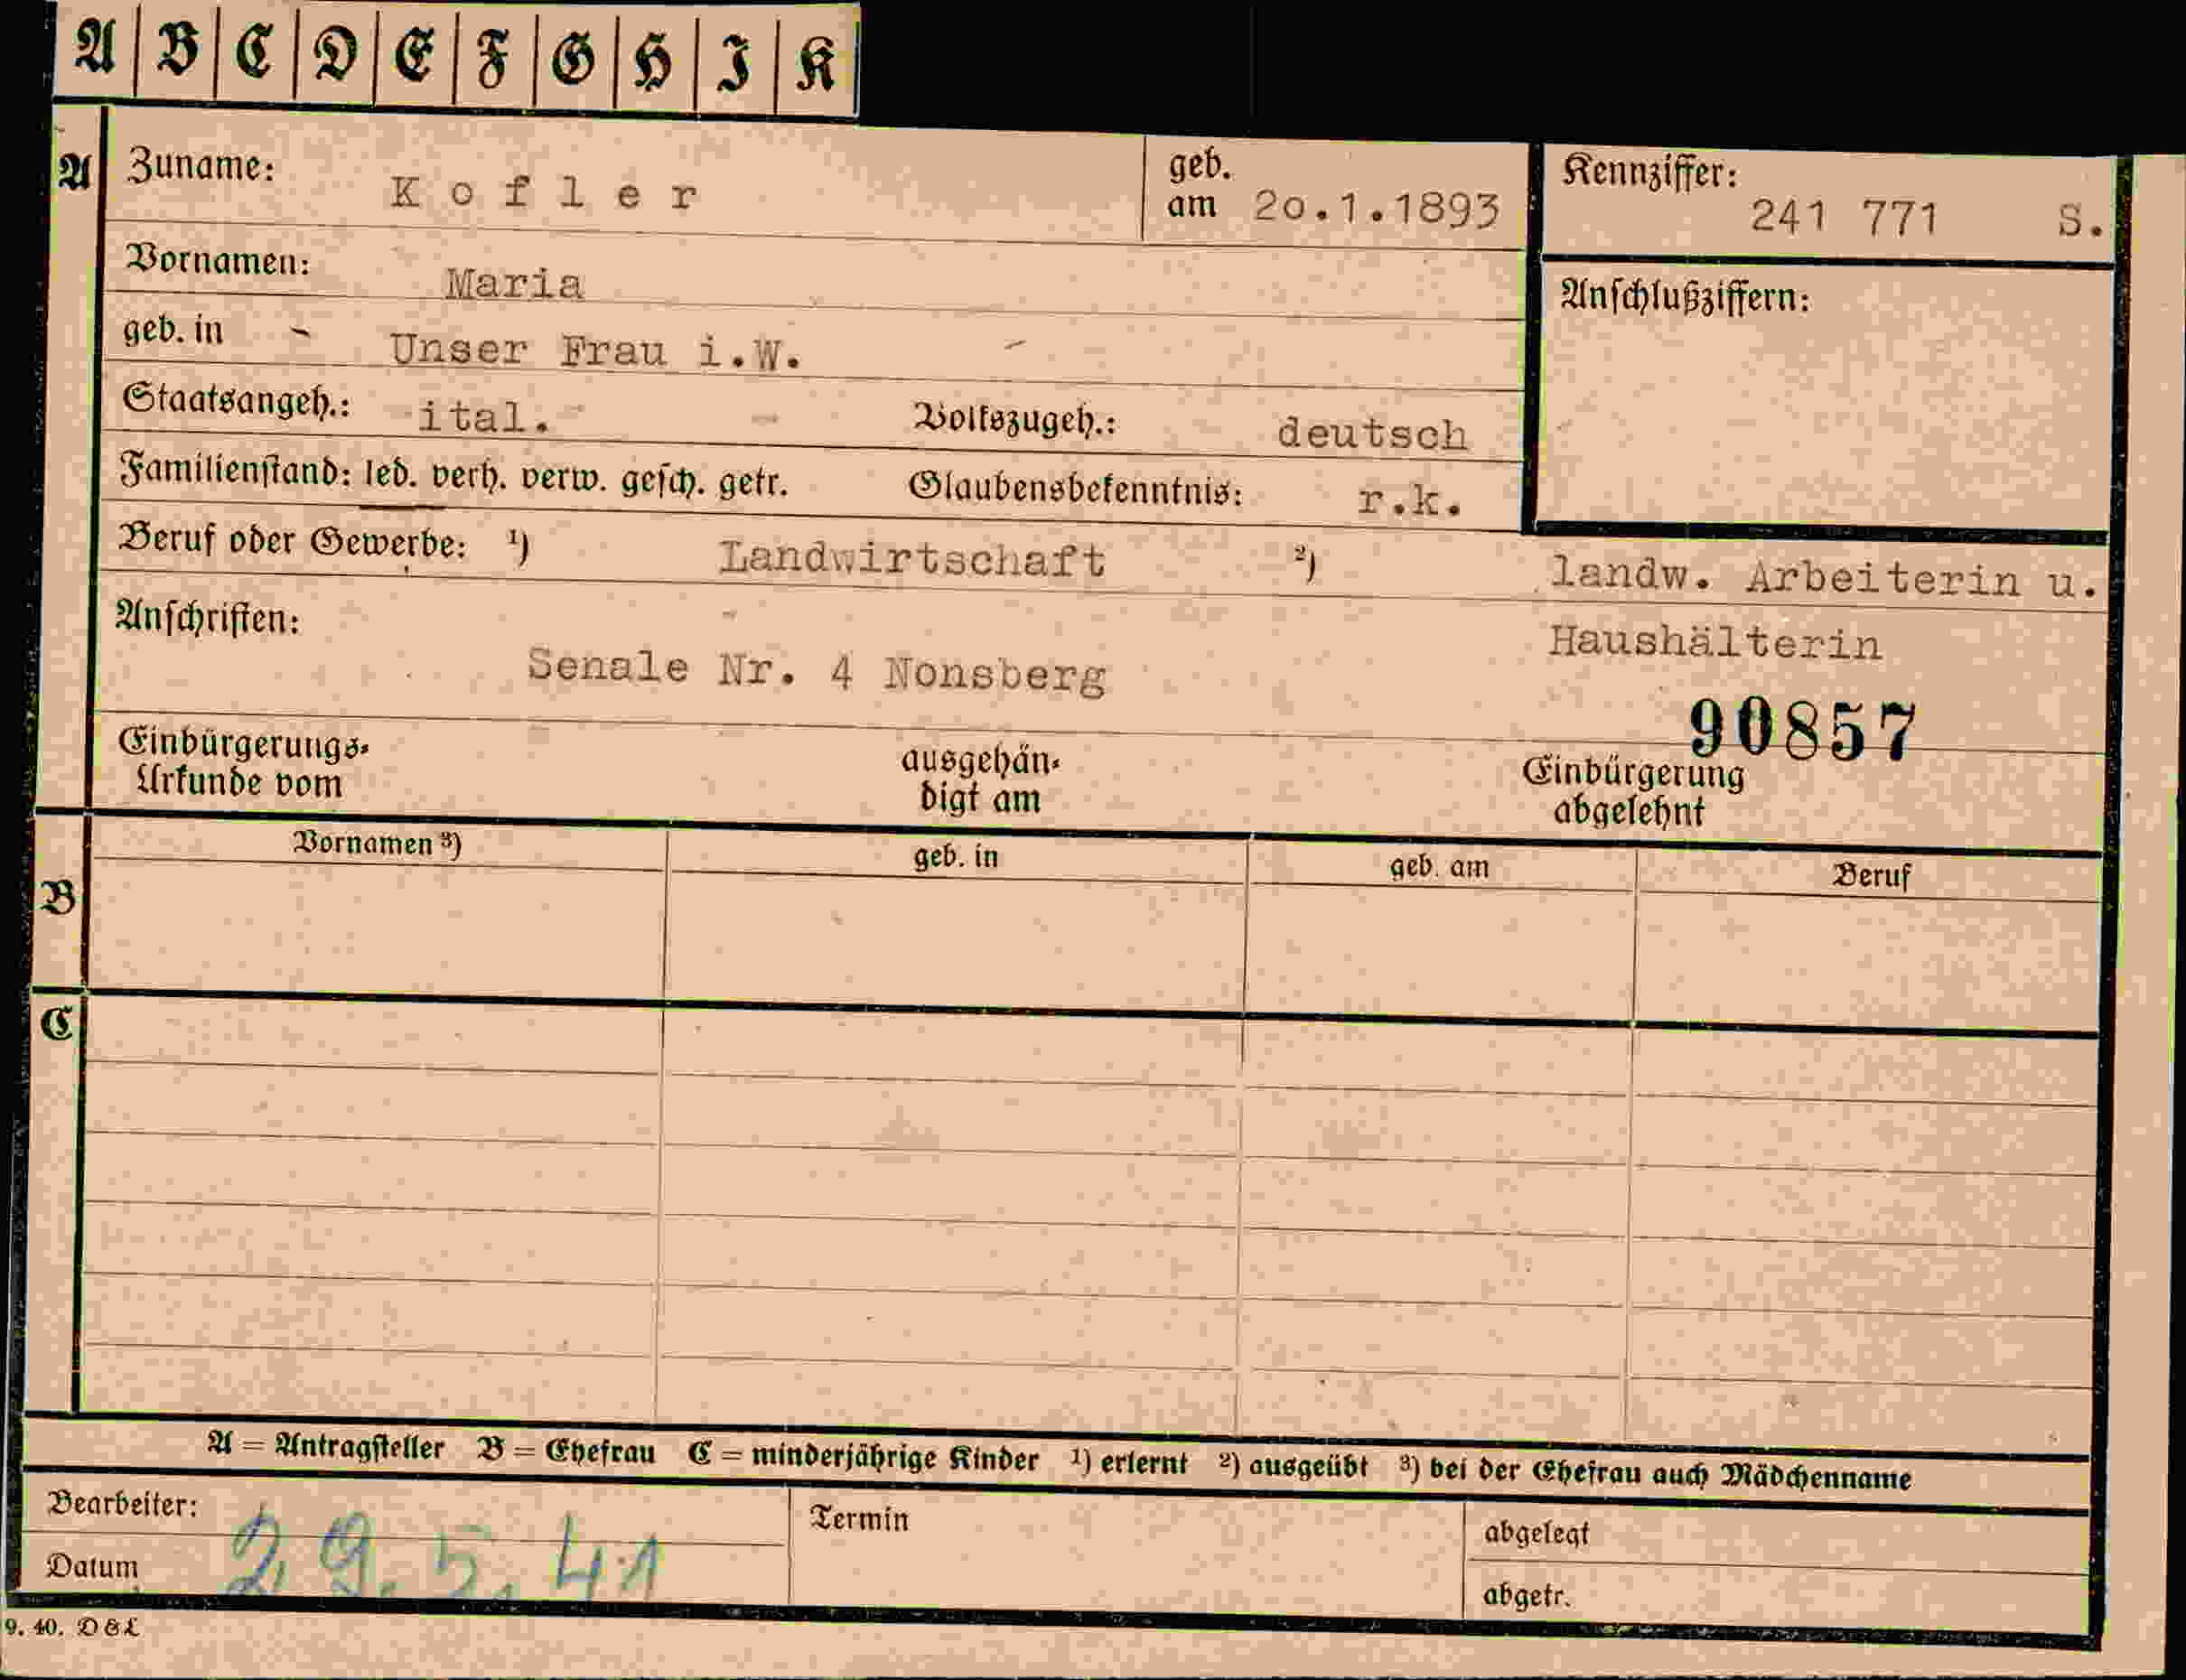 A B C D E F G H I K
A Zuname: Kofler geb. am 20.1.1893 Kennziffer: 241 771 S.
Vornamen: Maria
Anschlußziffern:
geb. in - Unser Frau i.W. -
Staatsangeh.: ital. - Volkszugeh.: deutsch
Familienstand: led. verh. verw. gesch. getr. Glaubensbekenntnis: r.k.
Beruf oder Gewerbe: ¹) Landwirtschaft ²) landw. Arbeiterin u.
Haushälterin
Anschriften:
Senale Nr. 4 Nonsberg
90857
Einbürgerungs-
Urkunde vom
ausgehän-
digt am
Einbürgerung
abgelehnt
B Vornamen ³) geb. in geb. am Beruf
C
A = Antragsteller B = Ehefrau C = minderjährige Kinder ¹) erlernt ²) ausgeübt ³) bei der Ehefrau auch Mädchenname
Bearbeiter:
Datum 29.5.41
Termin
abgelegt
abgetr.
9. 40. D & L